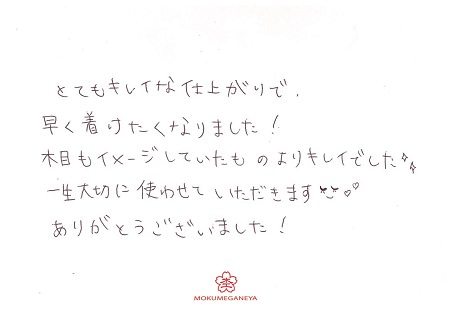 とてもキレイな仕上がりで、
早く着けたくなりました！
木目もイメージしていたものよりキレイでした
一生大切に使わせていただきます
ありがとうございました！
杢
MOKUMEGANEYA